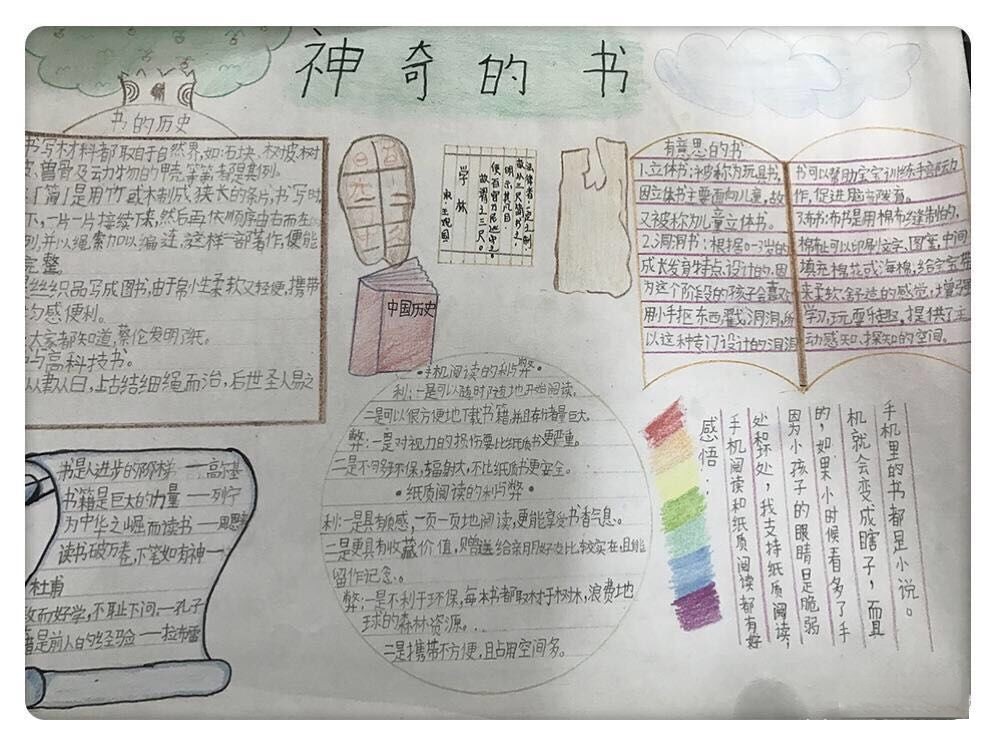 神奇的书
书的历史
书写材料都取自于自然界,如:石块、树皮、树
兽骨及动物的甲壳等等都是其例。
[简]是用竹或木制成狭长的条片,书写时
一片一片接续下来,然后再依顺序由右而左的
列,并以绳索加以编连,这样一部著作,便能
完整。
丝织品写成图书,由于帛生柔软又轻便,携带
感便利。
大家都知道,蔡伦发明了纸。
与高科技书。
从聿从曰,上古结细绳而治,后世圣人易之
学林
中国历史
有意思的书
1.立体书:被称为玩具书,
因立体书主要面向儿童,故
又被称为儿童立体书。
2.洞洞书:根据0-3岁的
成长发育特点设计的,因
为这个阶段的孩子会喜欢
用小手抠东西戳洞洞,所
以这种专门设计的洞洞
书可以帮助宝宝训练手部活力
作,促进脑部发育。
3.布书:布书是用棉布缝制的,
棉布可以印刷文字、图案,中间
填充棉花或海棉,给宝宝带
来柔软、舒适的感觉,增强
学习玩耍乐趣,提供了主
动感知、探知的空间。
•手机阅读的利与弊•
利:一是可以随时随地开始阅读。
二是可以很方便地下载书籍,并且存储量巨大。
弊:一是对视力的损伤要比纸质书更严重。
二是不够环保,辐射大,不比纸质书更安全。
•纸质阅读的利与弊•
利:一是具有质感,一页一页地阅读,更能享受书香气息。
二是更具有收藏价值,赠送给亲朋好友比较实在,且能
留作记念。
弊:一是不利于环保,每本书都取材于树木,浪费地
球的森林资源。
二是携带不方便,且占用空间多。
书是人进步的阶梯——高尔基
书籍是巨大的力量——列宁
为中华之崛而读书——周恩来
读书破万卷,下笔如有神—
杜甫
而好学,不耻下问,—孔子
籍是前人的经验——拉布雷
感悟:
手机阅读和纸质阅读都有好
处和坏处,我支持纸质阅读,
因为小孩子的眼睛是脆弱
的,如果小时候看多了手
机就会变成瞎子,而且
手机里的书都是小说。